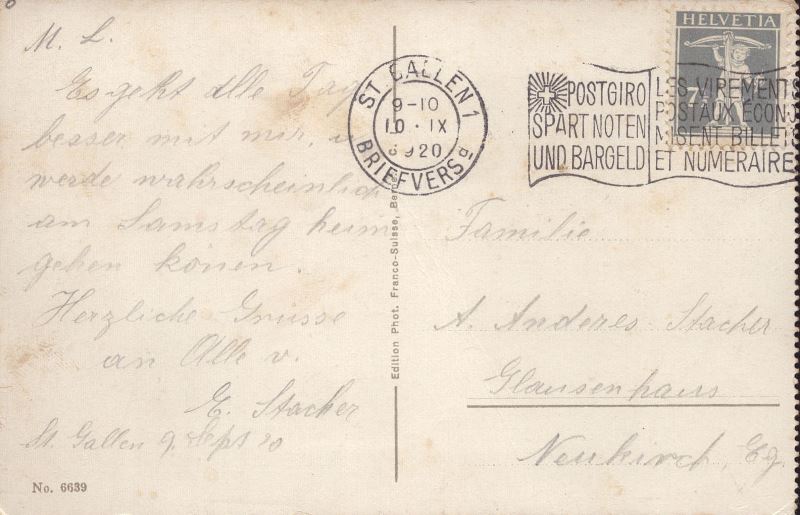 M. L.
Es geht alle Tag
besser mit mir, u
werde wahrscheinlich
am Samstag heim
gehen könen.
Herzliche Grüsse
an Alle v.
E. Stacher
St. Gallen 9. Sept 20
No. 6639
Edition Phot. Franco-Suisse, Berne
ST. GALLEN 1
9-10
10·IX
1920
BRIEFVERSD
POSTGIRO
SPART NOTEN
UND BARGELD
LES VIREMENTS
POSTAUX ÉCONO
MISENT BILLETS
ET NUMÉRAIRE
HELVETIA
7½
Familie
A. Anderes Stacher
Glausenhaus
Neukirch, Eg.